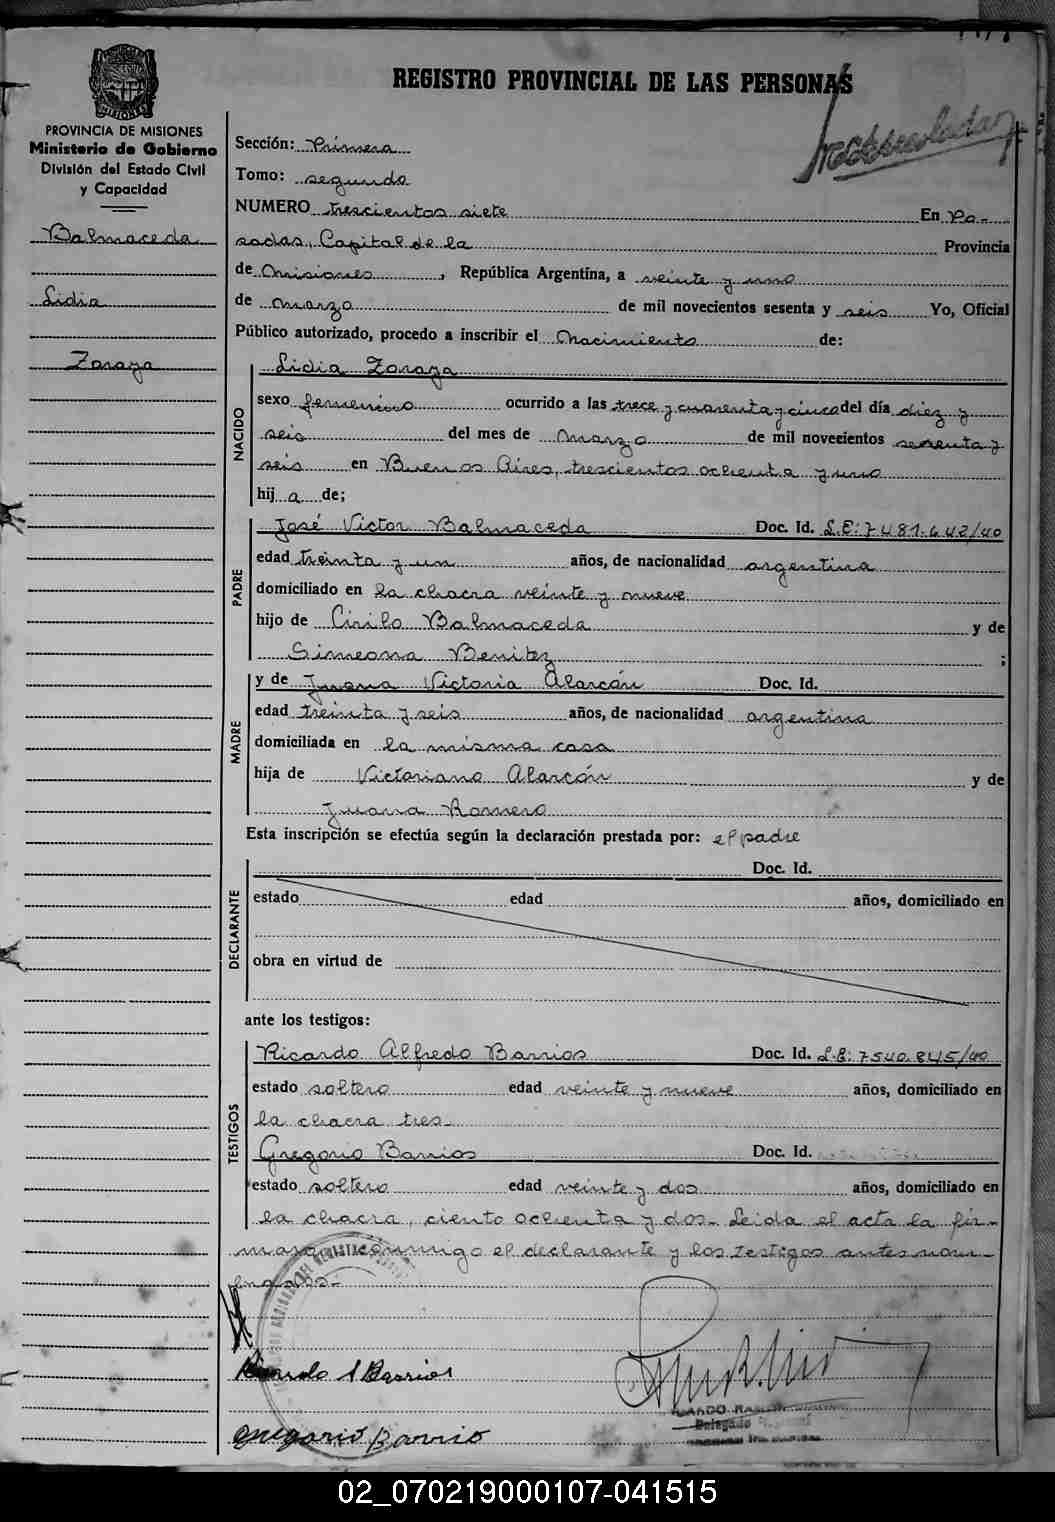 REGISTRO PROVINCIAL DE LAS PERSONAS
PROVINCIA DE MISIONES
Ministerio de Gobierno
División del Estado Civil
y Capacidad
Balmaceda
Lidia
Zoraya
Sección: Primera
Tomo: segundo
NUMERO trescientos siete En Po-
sadas, Capital de la Provincia
de Misiones, República Argentina, a veinte y uno
de Marzo de mil novecientos sesenta y seis Yo, Oficial
Público autorizado, procedo a inscribir el Nacimiento de:
NACIDO
Lidia Zoraya
sexo femenino ocurrido a las trece y cuarenta y cinco del día diez y
seis del mes de Marzo de mil novecientos sesenta y
seis en Buenos Aires, trescientos ochenta y uno
hij a de;
PADRE
José Victor Balmaceda Doc. Id. L.E: 7481.642/40
edad treinta y un años, de nacionalidad argentina
domiciliado en la chacra veinte y nueve
hijo de Cirilo Balmaceda y de
Simeona Benitez ;
MADRE
y de Juana Victoria Alarcón Doc. Id.
edad treinta y seis años, de nacionalidad argentina
domiciliada en la misma casa
hija de Victoriano Alarcón y de
Juana Romero
Esta inscripción se efectúa según la declaración prestada por: el padre
DECLARANTE
Doc. Id.
estado edad años, domiciliado en
obra en virtud de
ante los testigos:
TESTIGOS
Ricardo Alfredo Barrios Doc. Id. L.E: 7540.845/40
estado soltero edad veinte y nueve años, domiciliado en
la chacra tres-
Gregorio Barrios Doc. Id.
estado soltero edad veinte y dos años, domiciliado en
la chacra, ciento ochenta y dos- Leida el acta la fir-
man conmigo el declarante y los testigos antes nom-
brados-
Ricardo A Barrios
Gregorio Barrio
Delegado
02_070219000107-041515